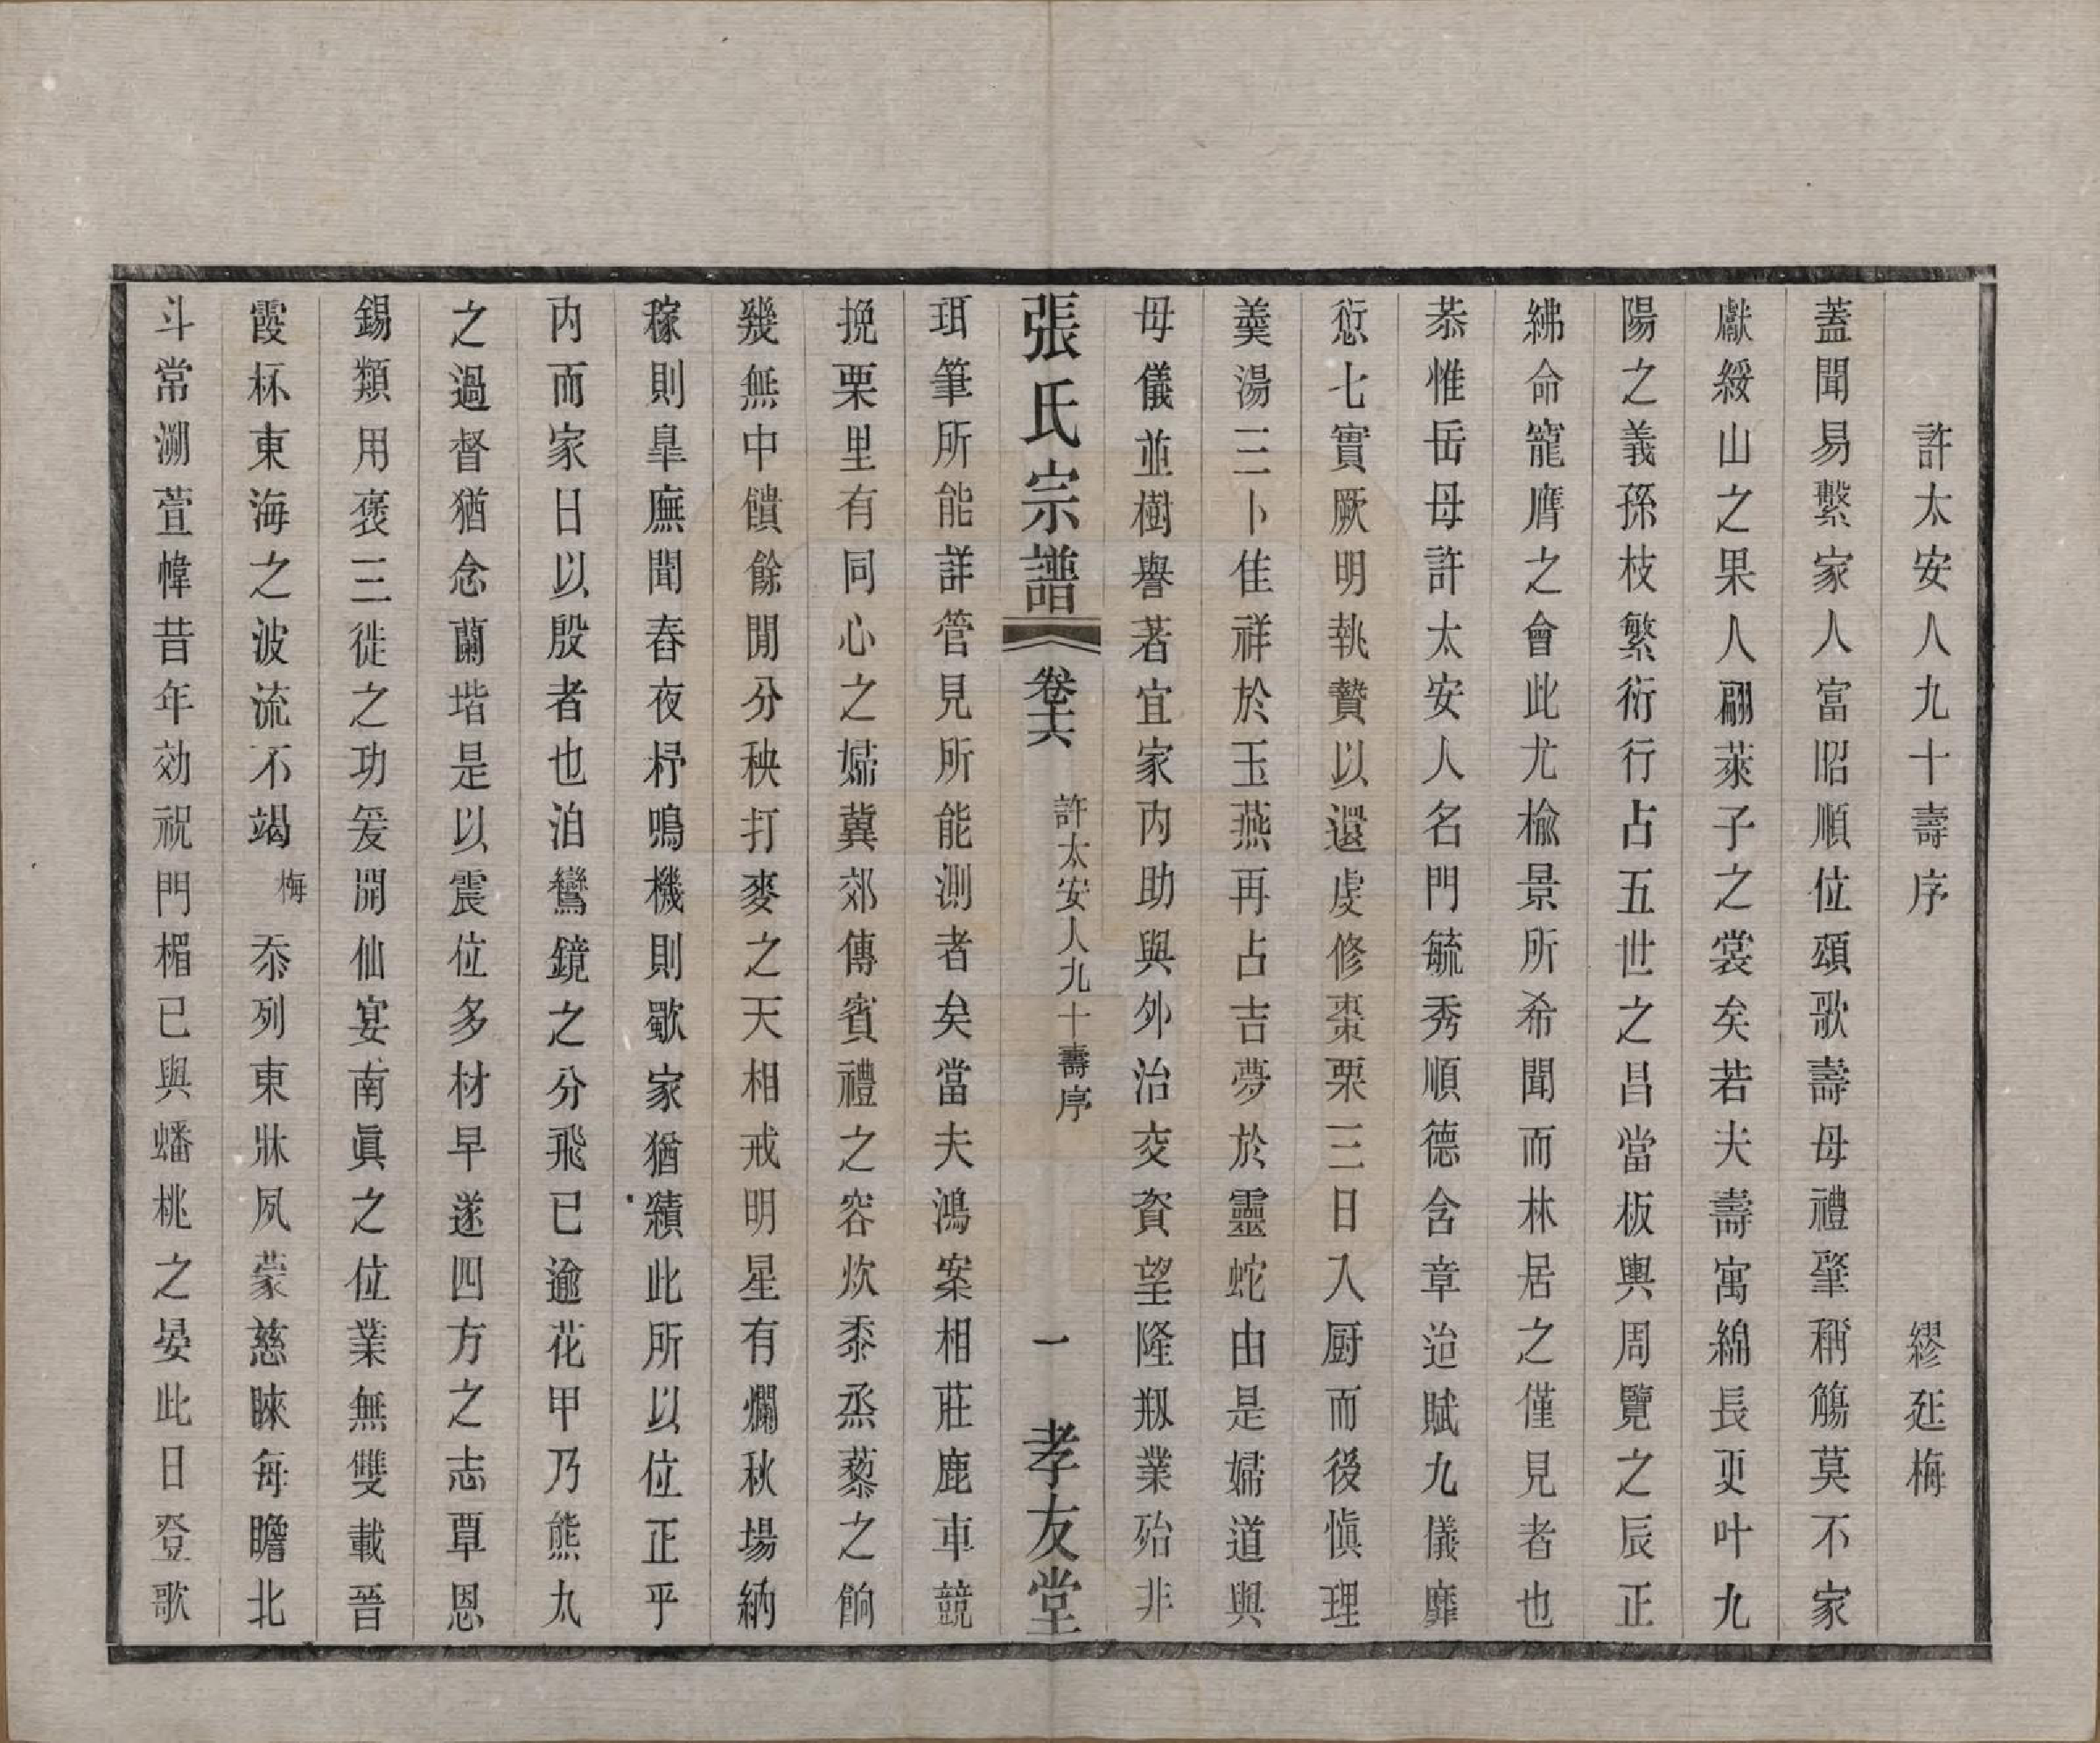 許太安人九十壽序　繆延梅
蓋聞易繫家人富昭順位頌歌壽母禮肇稱觴莫不家
獻綏山之果人翩萊子之裳矣若夫壽寓綿長更叶九
陽之義孫枝繁衍行占五世之昌當板輿周覽之辰正
紼命寵膺之會此尤榆景所希聞而林居之僅見者也
恭惟岳母許太安人名門毓秀順德含章迨賦九儀靡
愆七實厥明執贄以還虔修棗栗三日入厨而後慎理
羹湯三卜佳祥於玉燕再占吉夢於靈蛇由是婦道與
母儀並樹譽著宜家内助與外治交資望隆剏業殆非
張氏宗譜　卷六　許太安人九十壽序　一　孝友堂
珥筆所能詳管見所能測者矣當夫鴻案相莊鹿車競
挽栗里有同心之婦冀郊傳賓禮之容炊黍烝藜之餉
幾無中饋餘閒分秧打麥之天相戒明星有爛秋場納
稼則臯廡聞舂夜杼鳴機則歜家猶績此所以位正乎
内而家日以殷者也洎鸞鏡之分飛已逾花甲乃熊丸
之過督猶念蘭堦是以震位多材早遂四方之志覃恩
錫類用褒三徙之功爰開仙宴南眞之位業無雙載晉
霞杯東海之波流不竭梅忝列東牀夙蒙慈睞每瞻北
斗常溯萱幃昔年効祝門楣已與蟠桃之晏此日登歌